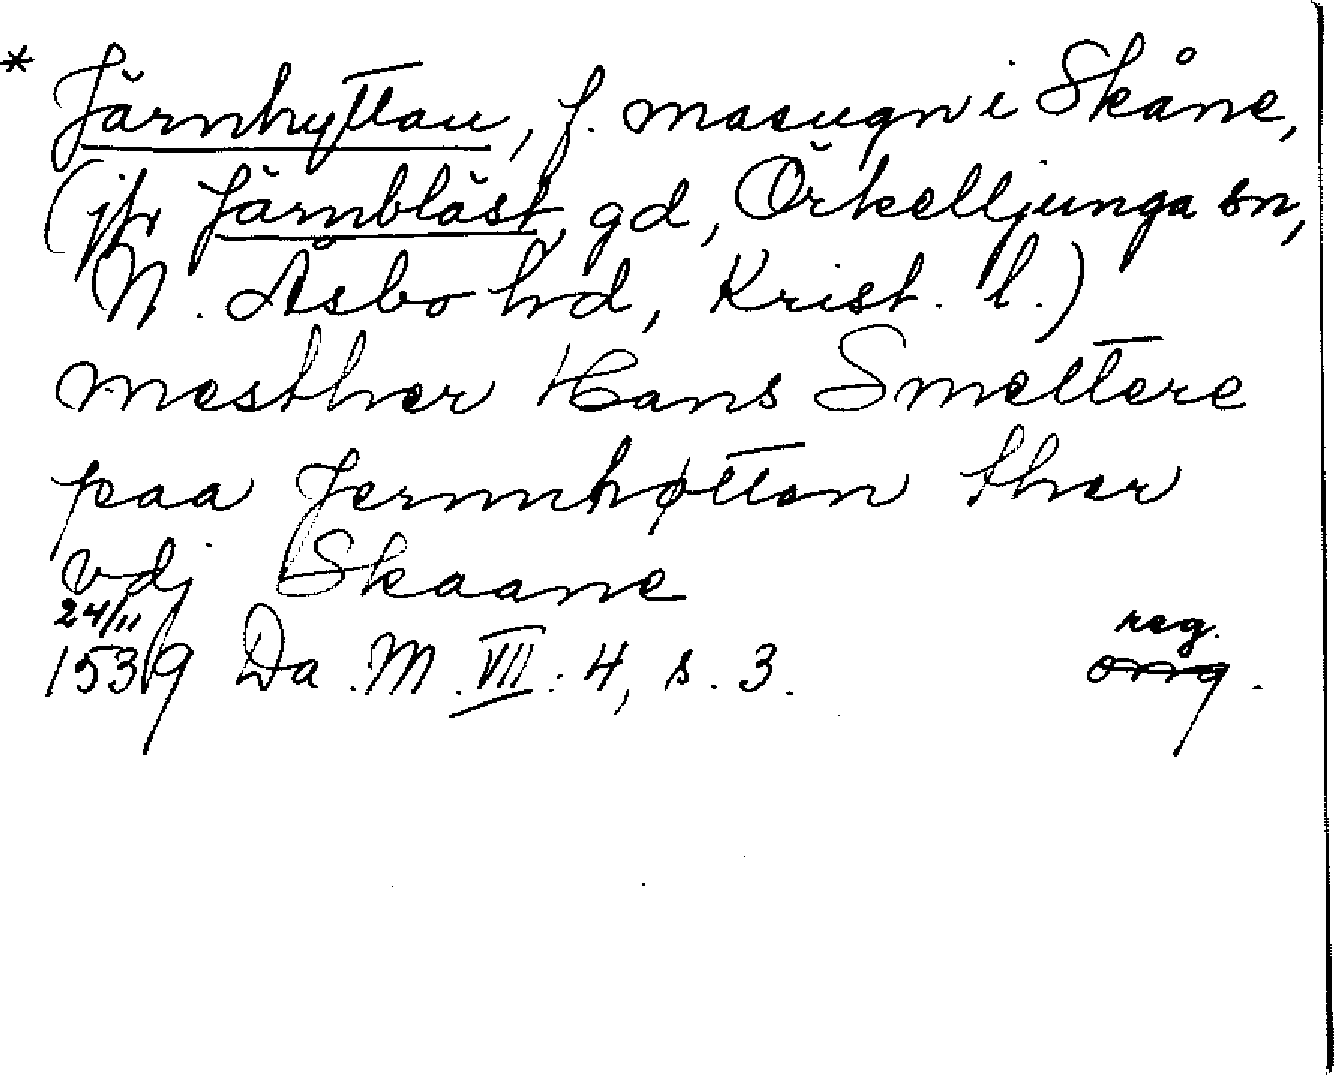 * Järnhyttan, f. masugn i Skåne,
(jfr Järnbläst, gd, Örkelljunga sn,
N. Åsbo hd, Krist. l.)
mesther Hans Smeltere
paa Jernnhøtten ther
vdj Skaane
24/11 reg.
1539 Da. M. VII. 4, s. 3. orig.